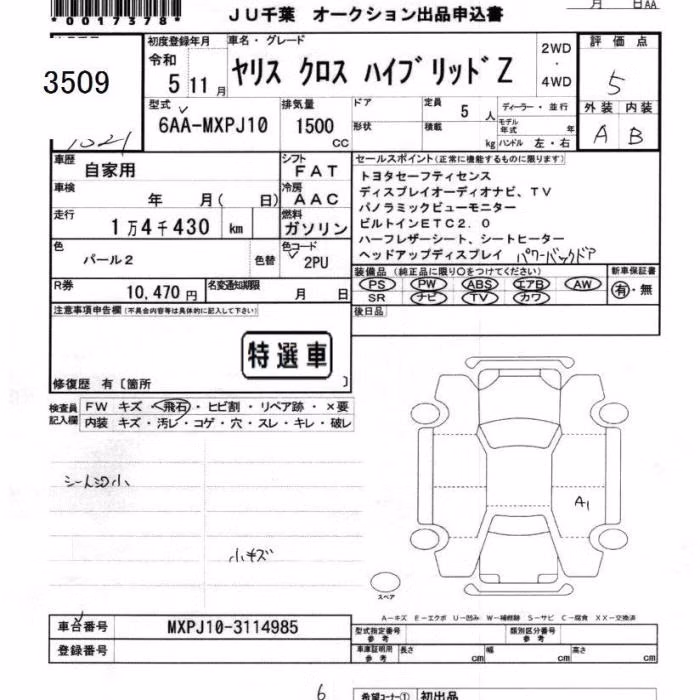 *0017378*
JU千葉 オークション出品申込書
月 日AA
3509
1021
初度登録年月
令和
5 11月
車名・グレード
ヤリス クロス ハイブリッド Z
2WD
・
4WD
評価点
5
外装 内装
A B
型式
6AA-MXPJ10
排気量
1500
CC
ドア
形状
定員 5 人
積載 kg
ディーラー・並行
モデル年式 年
ハンドル 左・右
車歴 自家用
シフト FAT
車検 年 月( 日)
冷房 AAC
走行 1万4千430 km
燃料 ガソリン
色 パール2 色替
色コード 2PU
R券 10,470円
名変通知期限 月 日
セールスポイント(正常に機能するものに限ります)
トヨタセーフティセンス
ディスプレイオーディオナビ、TV
パノラミックビューモニター
ビルトインETC2.0
ハーフレザーシート、シートヒーター
ヘッドアップディスプレイ パワーバックドア
装備品(純正品に限り○をつけてください)
PS PW ABS エアB AW
SR ナビ TV カワ
新車保証書
有・無
後日品
注意事項申告欄(不具合内容等は具体的に記入して下さい)
特選車
修復歴 有〔箇所 〕
検査員
記入欄
FW キズ・飛石・ヒビ割・リペア跡・×要
内装 キズ・汚レ・コゲ・穴・スレ・キレ・破レ
小キズ
A1
スペア
A-キズ E-エクボ U-凹み W-補修跡 S-サビ C-腐食 XX-交換済
車台番号 MXPJ10-3114985
登録番号
型式指定番号
参考
類別区分番号
参考
車庫証明用
参考
長さ cm 幅 cm 高さ cm
6
希望コーナー① 初出品